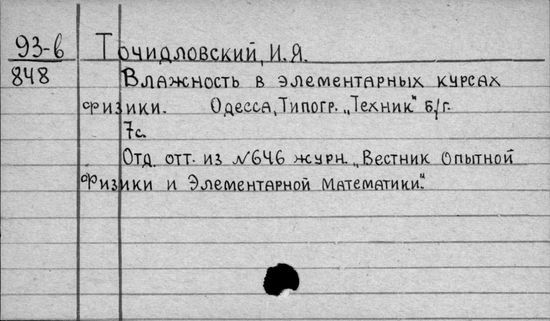 93-6 Точидловский, И.Я.
848 Влажность в элементарных курсах
физики. Одесса, Типогр. „Техник" б/г.
7с.
Отд. отт. из №646 журн. „Вестник опытной
Физики и Элементарной Математики."